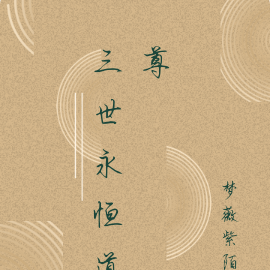 尊
三世永恒道
梦薇紫陌